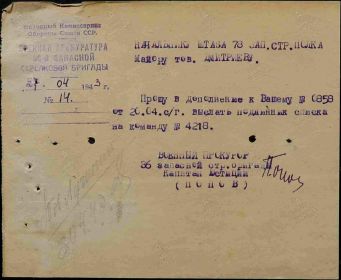 Народный Комиссариат
Обороны Союза ССР.
ВОЕННАЯ ПРОКУРАТУРА
36-й ЗАПАСНОЙ
СТРЕЛКОВОЙ БРИГАДЫ
27. 04 1943 г.
№ 14.
НАЧАЛЬНИКУ ШТАБА 78 ЗАП.СТР.ПОЛКА
Майору тов. ДМИТРИЕВУ.
Прошу в дополнение к Вашему № 0858
от 20.04.с/г. выслать подлинник списка
на команду № 4218.
ВОЕННЫЙ ПРОКУРОР
36 запасной стр.бригады
Капитан юстиции
( ПОПОВ )